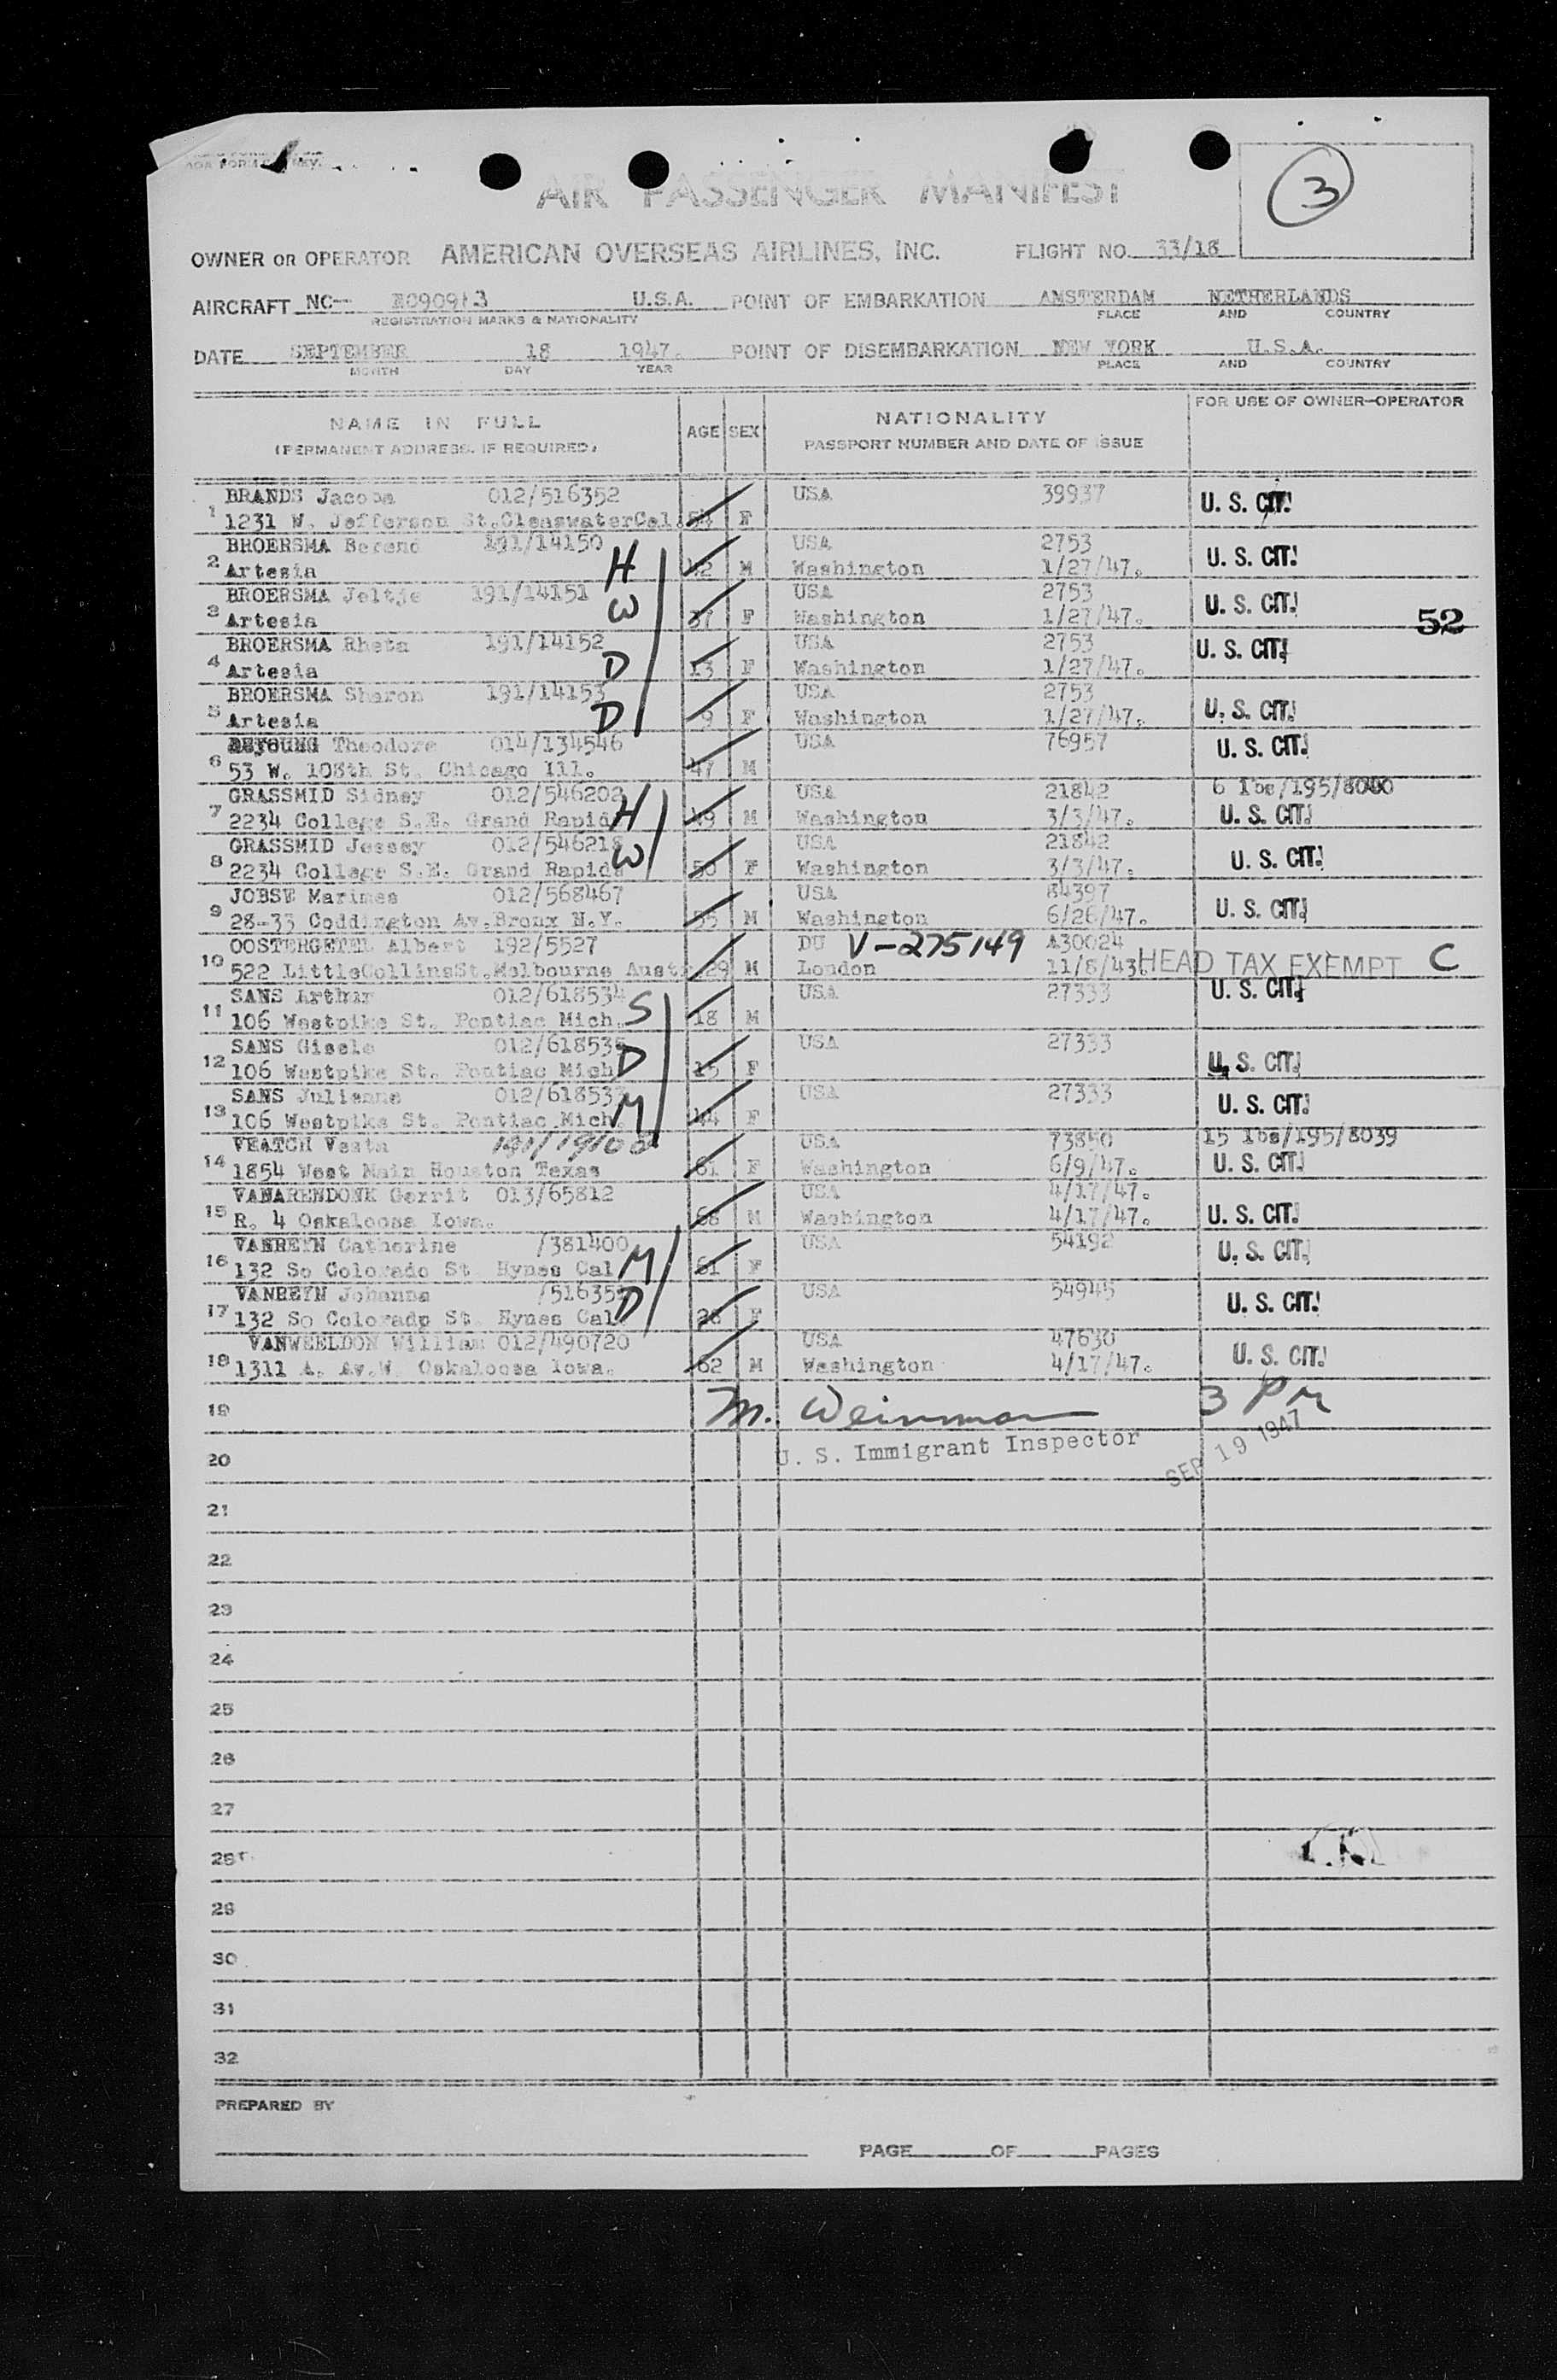 AOA FORM REV.
AIR PASSENGER MANIFEST
3
OWNER OR OPERATOR AMERICAN OVERSEAS AIRLINES, INC. FLIGHT NO. 33/18
AIRCRAFT NC-- U.S.A. POINT OF EMBARKATION AMSTERDAM NETHERLANDS
REGISTRATION MARKS & NATIONALITY PLACE AND COUNTRY
DATE SEPTEMBER 18 1947. POINT OF DISEMBARKATION NEW YORK U.S.A.
MONTH DAY YEAR PLACE AND COUNTRY
NAME IN FULL AGE SEX NATIONALITY FOR USE OF OWNER-OPERATOR
(PERMANENT ADDRESS, IF REQUIRED) PASSPORT NUMBER AND DATE OF ISSUE
BRANDS Jacoba 012/516352 USA 39937 U. S. CIT.
1 1231 W. Jefferson St. Cal. 54 F
BROERSMA Berend 191/14150 USA 2753 U. S. CIT.
2 Artesia H 42 M Washington 1/27/47.
BROERSMA Jeltje 191/14151 W USA 2753 U. S. CIT.
3 Artesia 37 F Washington 1/27/47. 52
BROERSMA Rheta 191/14152 USA 2753 U. S. CIT.
4 Artesia D 13 F Washington 1/27/47.
BROERSMA Sharon 191/14153 USA 2753 U. S. CIT.
5 Artesia D 9 F Washington 1/27/47.
DEYOUNG Theodore 014/134546 USA 76957 U. S. CIT.
6 53 W. 108th St. Chicago Ill. 47 M
GRASSMID Sidney 012/546202 H USA 21842 6 lbs/195/8040
7 2234 College S.E. Grand Rapids 49 M Washington 3/3/47. U. S. CIT.
GRASSMID Jessey 012/546218 W USA 21842 U. S. CIT.
8 2234 College S.E. Grand Rapids 50 F Washington 3/3/47.
JOBSE Marinus 012/568467 USA 84397 U. S. CIT.
9 28-33 Coddington Av.Bronx N.Y. 55 M Washington 6/26/47.
OOSTERGETEL Albert 192/5527 DU V-275149 A30024
10 522 LittleCollinsSt.Melbourne Aust. 29 M London 11/8/43. HEAD TAX EXEMPT C
SANS Arthur 012/618534 S USA 27333 U. S. CIT.
11 106 Westpike St. Pontiac Mich. 18 M
SANS Gisele 012/618535 D USA 27333
12 106 Westpike St. Pontiac Mich. 15 F U. S. CIT.
SANS Julienne 012/618533 M USA 27333 U. S. CIT.
13 106 Westpike St. Pontiac Mich. 44 F
VEATCH Vesta USA 73850 15 lbs/195/8039
14 1854 West Main Houston Texas 61 F Washington 6/9/47. U. S. CIT.
VANARENDONK Gerrit 013/65812 USA 4/17/47.
15 R. 4 Oskaloosa Iowa. 68 M Washington 4/17/47. U. S. CIT.
VANREYN Catherine /381400 M USA 54192 U. S. CIT.
16 132 So Colorado St. Hynes Cal. 61 F
VANREYN Johanna D USA 54945 U. S. CIT.
17 132 So Colorado St. Hynes Cal. 28 F
VANWEELDON William 012/490720 USA 47630 U. S. CIT.
18 1311 A. Av.W. Oskaloosa Iowa. 62 M Washington 4/17/47.
19 M. Weinman 3 PM
20 U. S. Immigrant Inspector SEP 19 1947
21
22
23
24
25
26
27
28
29
30
31
32
PREPARED BY
PAGE OF PAGES